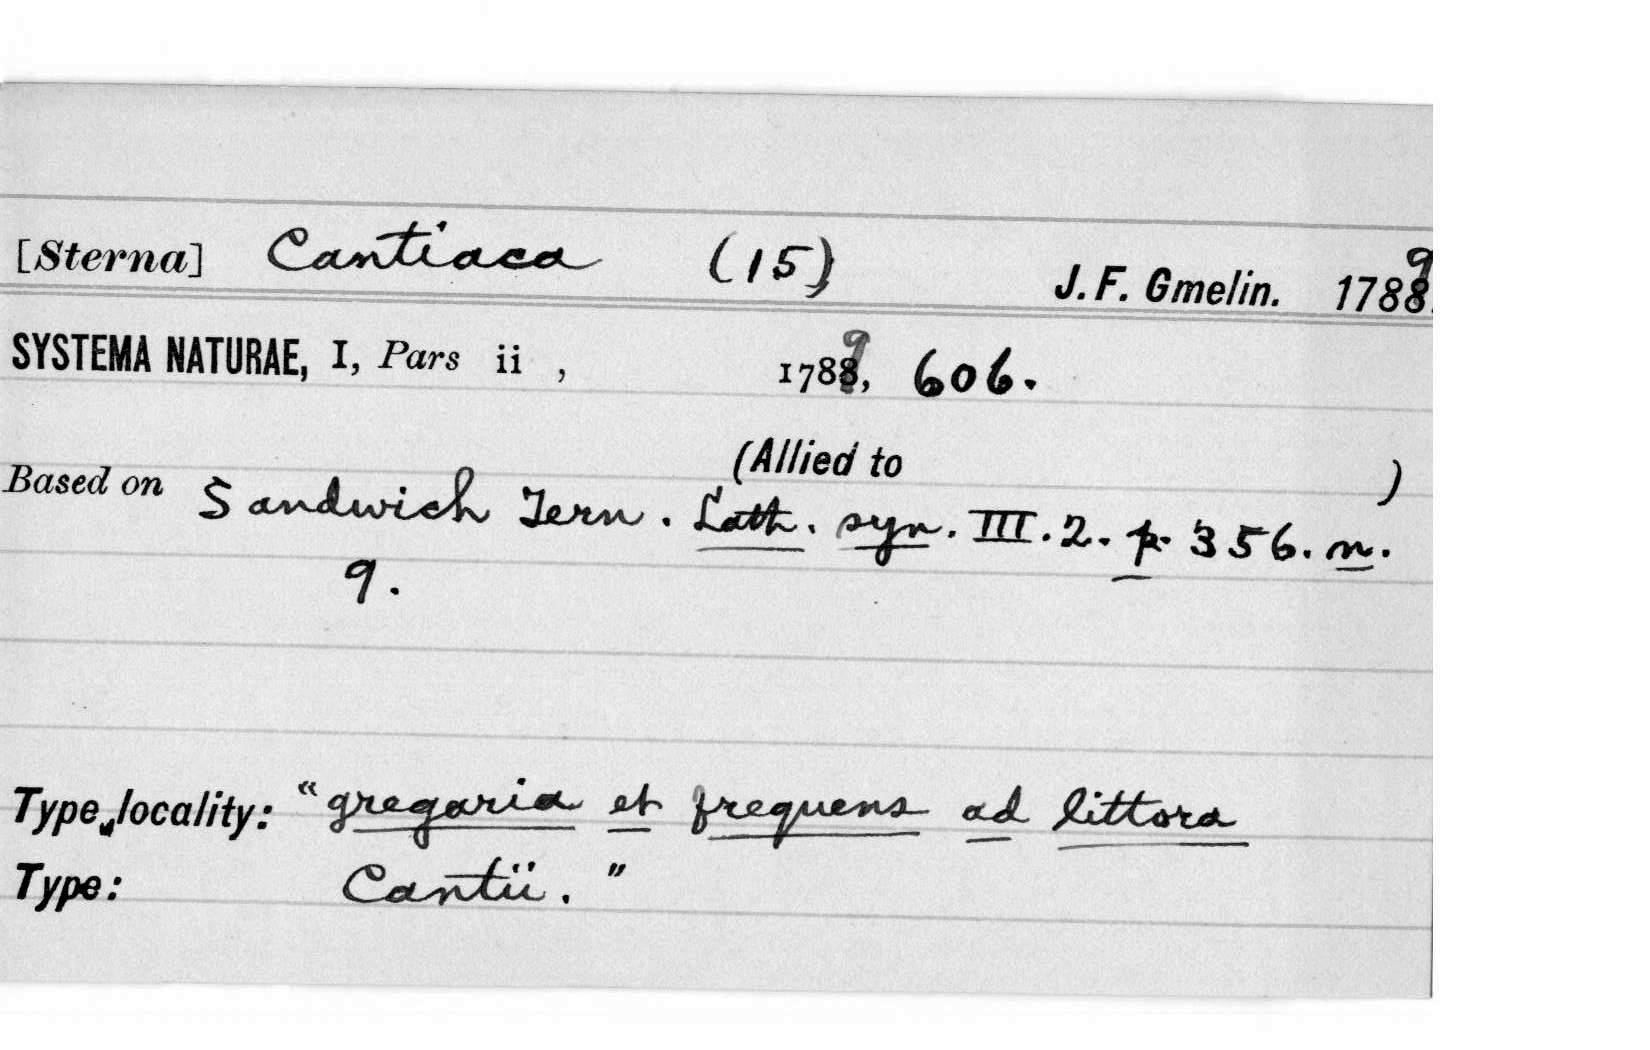 [Sterna] Cantiaca (15) J. F. Gmelin. 1789
SYSTEMA NATURAE, I, Pars ii , 1789, 606.
(Allied to )
Based on Sandwich Tern. Lath. syn. III. 2. p. 356. n.
9.
Type locality: "gregaria et frequens ad littora
Type: Cantii."